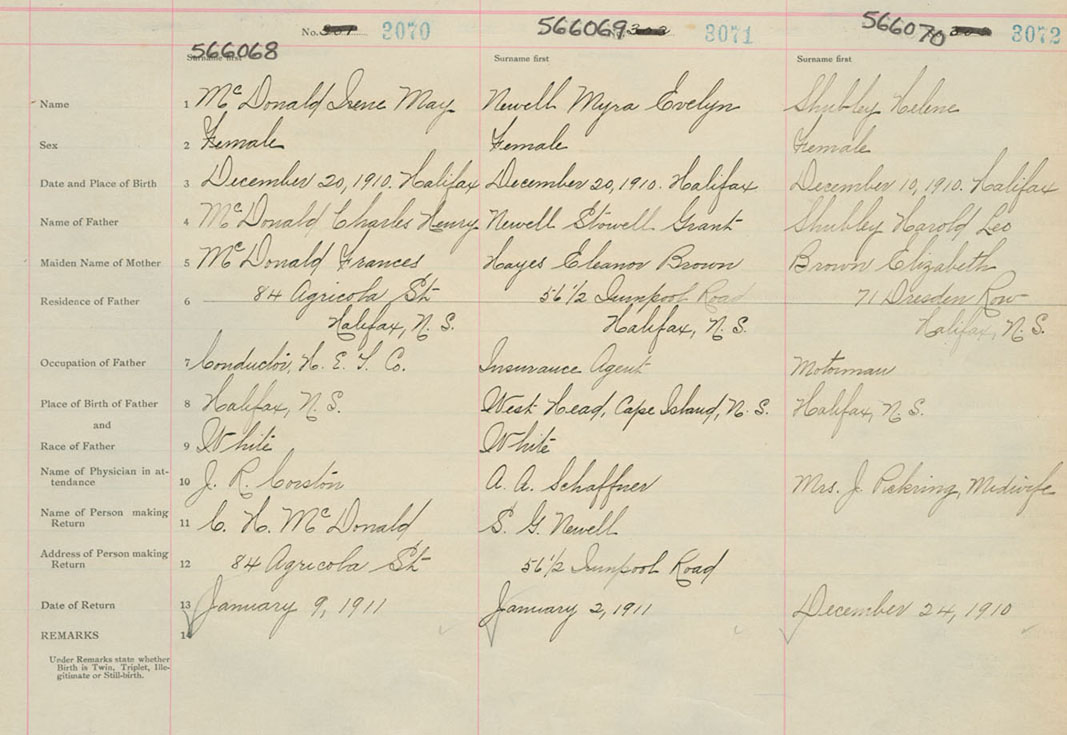 566068 No. 3070 566069 3071 566070 3072
Surname first Surname first Surname first
Name 1 McDonald Irene May Newell Myra Evelyn Shubley Helene
Sex 2 Female Female Female
Date and Place of Birth 3 December 20, 1910. Halifax December 20, 1910. Halifax December 10, 1910. Halifax
Name of Father 4 McDonald Charles Henry Newell Stowell Grant Shubley Harold Leo
Maiden Name of Mother 5 McDonald Frances Hayes Eleanor Brown Brown Elizabeth
Residence of Father 6 84 Agricola St 56 1/2 Road 71 Dresden Row
Halifax, N. S. Halifax, N. S. Halifax, N. S.
Occupation of Father 7 Conductor, H. E. T. Co. Insurance Agent Motorman
Place of Birth of Father 8 Halifax, N. S. West Head, Cape Island, N. S. Halifax, N. S.
and
Race of Father 9 White White
Name of Physician in at-
tendance 10 J. R. Corston A. A. Schaffner Mrs. J. Pickering, Midwife
Name of Person making
Return 11 C. H. McDonald S. G. Newell
Address of Person making
Return 12 84 Agricola St 56 1/2 Road
Date of Return 13 January 9, 1911 January 2, 1911 December 24, 1910
REMARKS 14
Under Remarks state whether
Birth is Twin, Triplet, Ille-
gitimate or Still-birth.